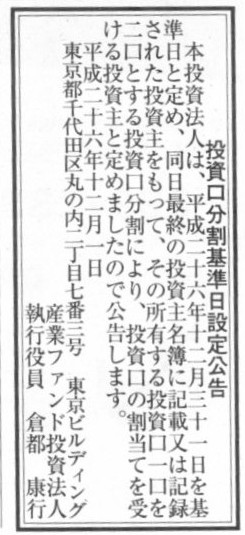 投資口分割基準日設定公告
本投資法人は、平成二十六年十二月三十一日を基
準日と定め、同日最終の投資主名簿に記載又は記録
された投資主をもって、その所有する投資口一口を
二口とする投資口分割により、投資口の割当てを受
ける投資主と定めましたので公告します。
平成二十六年十二月一日
東京都千代田区丸の内二丁目七番三号 東京ビルディング
産業ファンド投資法人
執行役員 倉都 康行